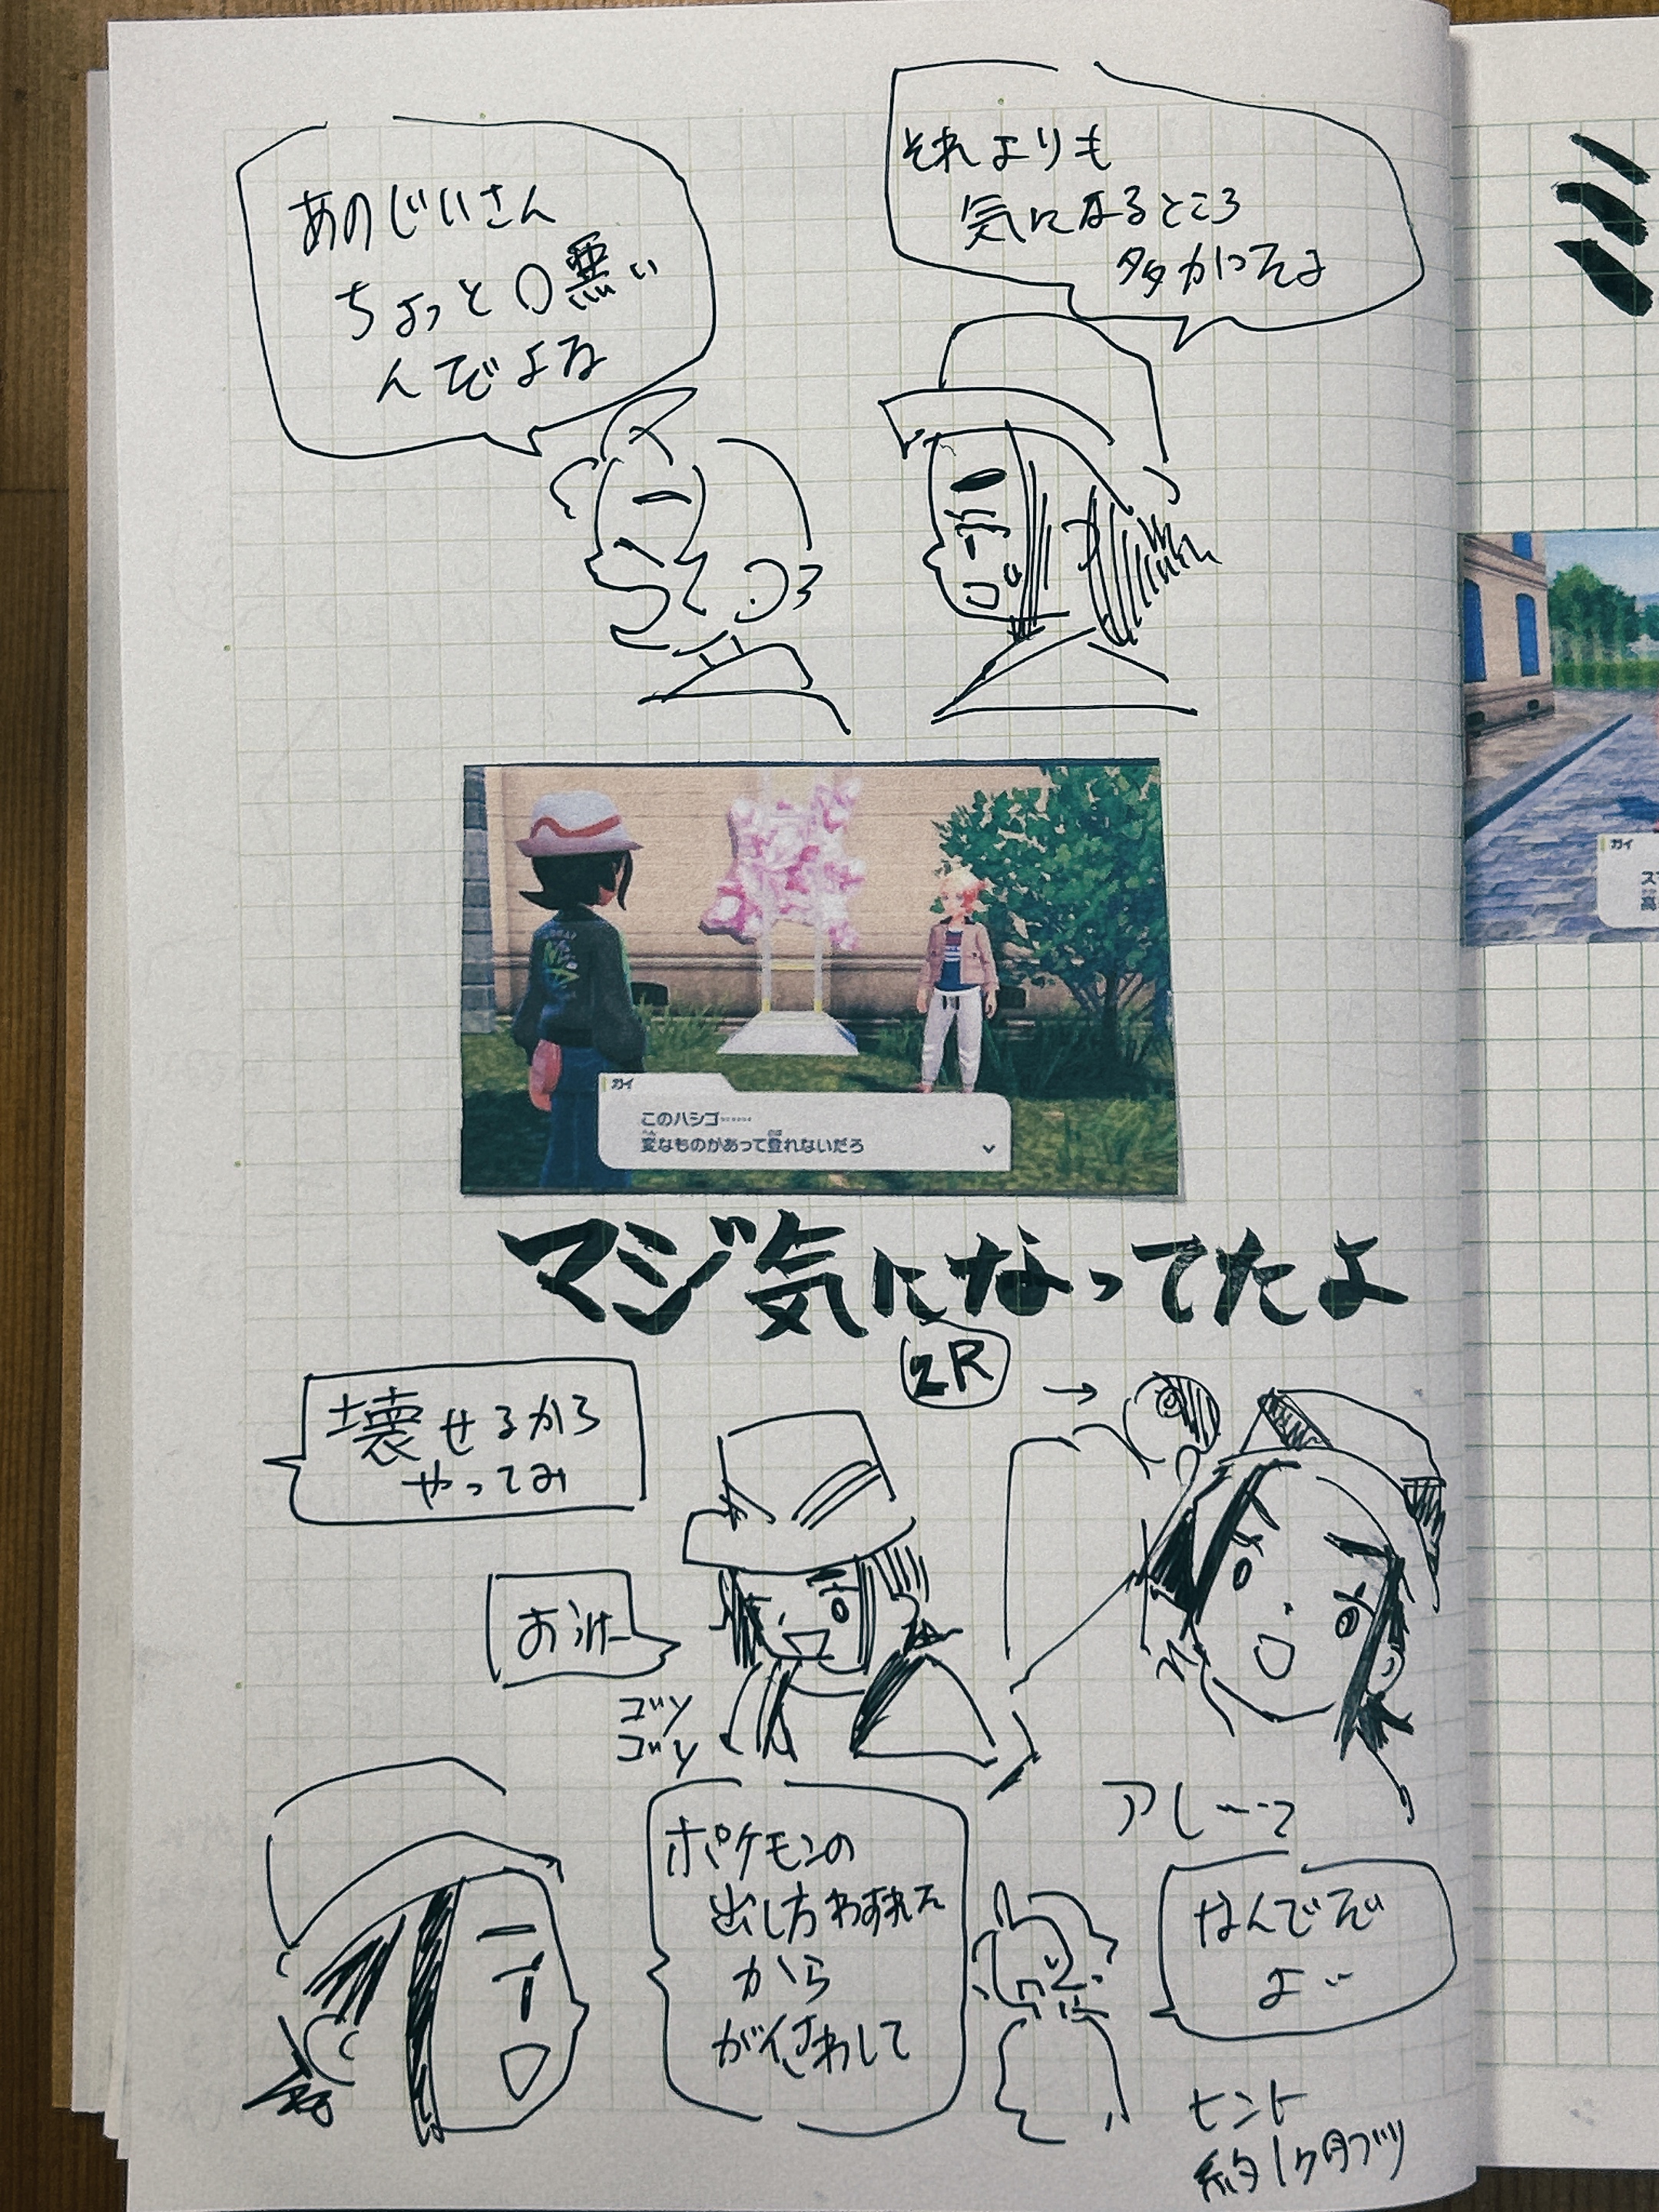 それよりも
気になるところ
多かったよ
あのじいさん
ちょっと口悪い
んでよな
ミ
ガイ
このハシゴ……
変なものがあって登れないだろ
ガイ
マジ気になってたよ
ZR
→
壊せるから
やってみ
おけー
ゴソ
ゴソ
アレーっ
ポケモンの
出し方わすれた
から
がイこわして
なんでだ
よ
ヒント
約1ヶ月ブリ